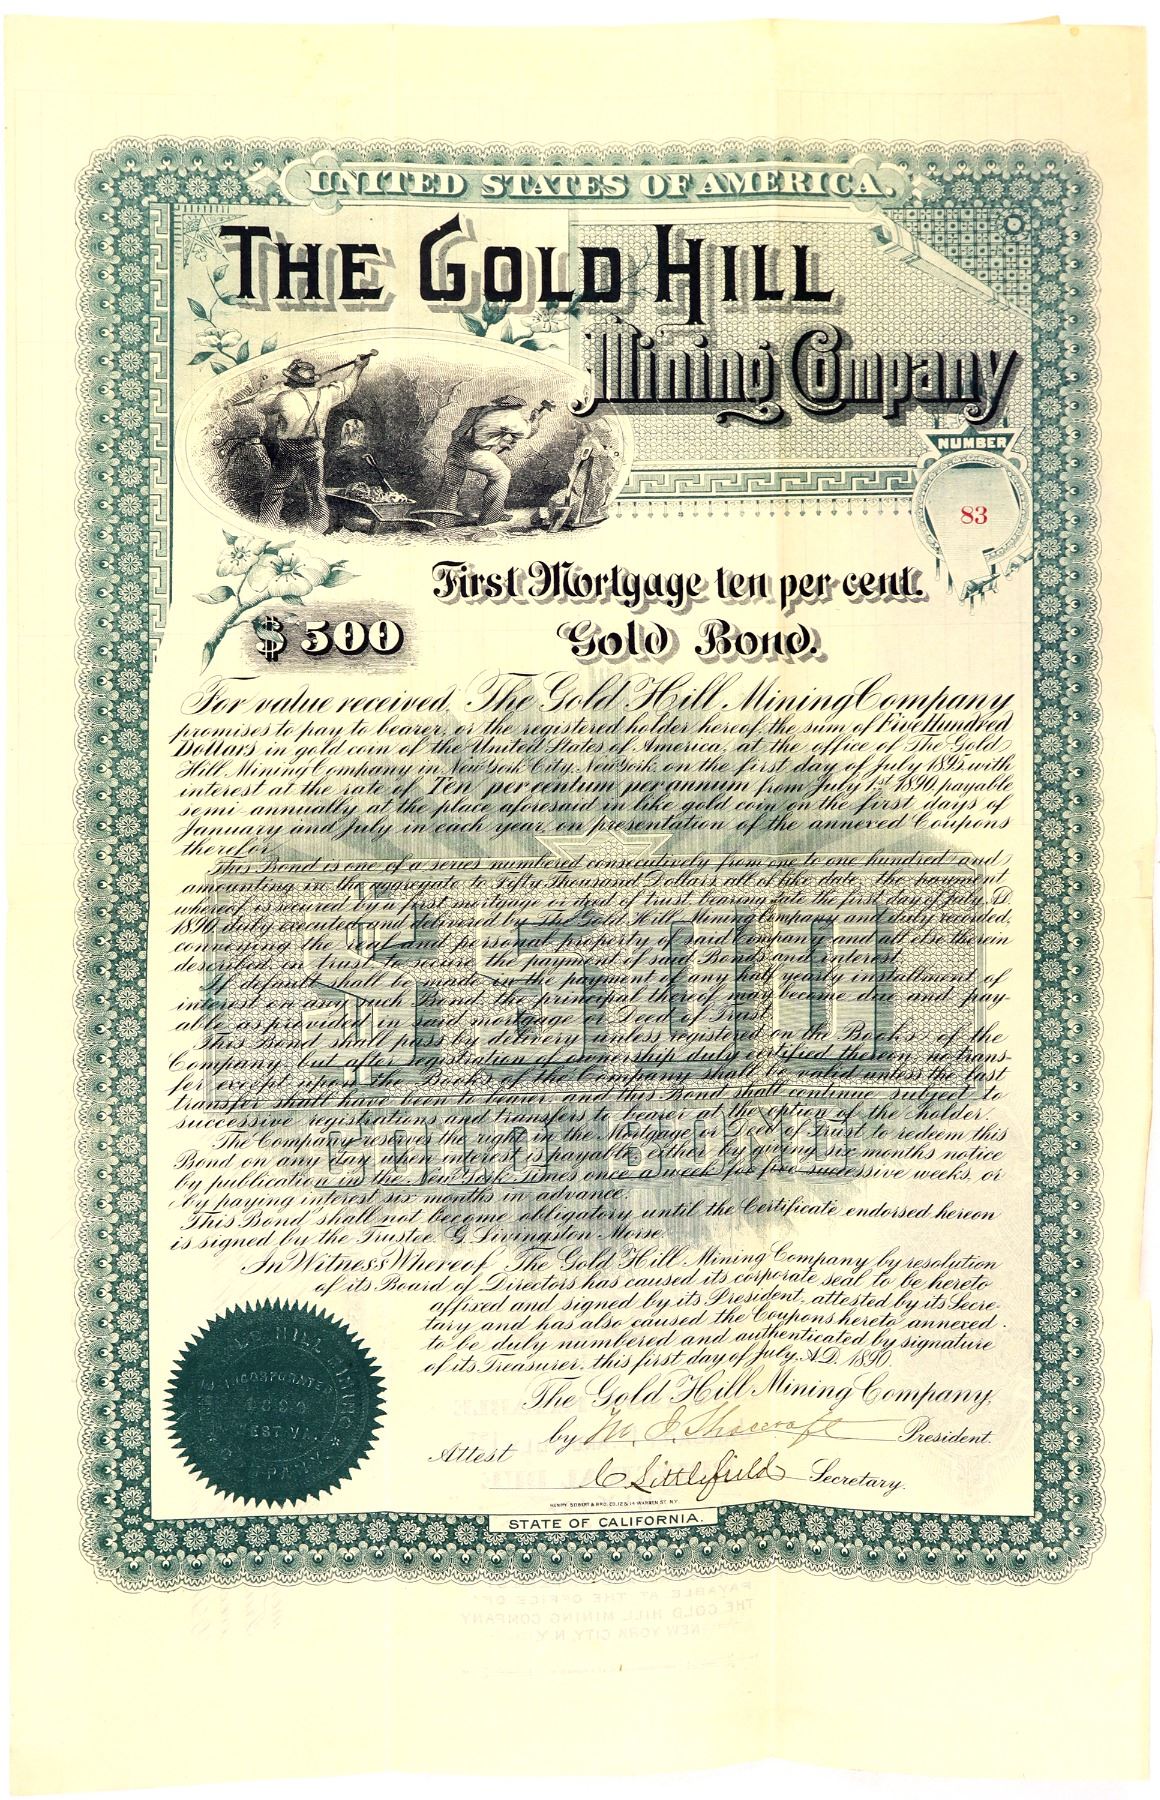 UNITED STATES OF AMERICA.
THE GOLD HILL
Mining Company
NUMBER
83
First Mortgage ten per cent.
$500
Gold Bond.
For value received, The Gold Hill Mining Company
promises to pay to bearer, or the registered holder hereof, the sum of Five Hundred
Dollars in gold coin of the United States of America, at the office of The Gold
Hill Mining Company in New York City, New York, on the first day of July 1895, with
interest at the rate of Ten per centum per annum from July 1st 1890, payable
semi-annually at the place aforesaid in like gold coin on the first days of
January and July in each year, on presentation of the annexed Coupons
therefor.
This Bond is one of a series numbered consecutively from one to one hundred and
amounting in the aggregate to Fifty Thousand Dollars all of like date, the payment
whereof is secured by a first mortgage or deed of trust, bearing date the first day of July, A.D.
1890, duly executed and delivered by The Gold Hill Mining Company and duly recorded,
conveying the real and personal property of said Company and all else therein
described, in trust, to secure the payment of said Bonds and interest.
If default shall be made in the payment of any half yearly installment of
interest on any such Bond, the principal thereof may become due and pay-
able, as provided in said mortgage or Deed of Trust.
This Bond shall pass by delivery unless registered on the Books of the
Company, but after registration of ownership duly certified thereon, no trans-
fer except upon the Books of the Company shall be valid unless the last
transfer shall have been to bearer and this Bond shall continue subject to
successive registrations and transfers to bearer at the option of the holder.
The Company reserves the right in the Mortgage or Deed of Trust to redeem this
Bond on any day when interest is payable, either by giving six months notice
by publication in the New York Times once a week for five successive weeks, or
by paying interest six months in advance.
This Bond shall not become obligatory until the Certificate endorsed hereon
is signed by the Trustee, G. Livingston Morse.
$500
GOLD BOND
In Witness Whereof, The Gold Hill Mining Company by resolution
of its Board of Directors has caused its corporate seal to be hereto
affixed and signed by its President, attested by its Secre-
tary and has also caused the Coupons hereto annexed
to be duly numbered and authenticated by signature
of its Treasurer, this first day of July, A.D. 1890.
The Gold Hill Mining Company,
by President.
Attest
C Littlefield Secretary.
HILL MINING
INCORPORATED
WEST VA.
HENRY SEIBERT & BRO. CO. 12 & 14 WARREN ST. N.Y.
STATE OF CALIFORNIA.
PAYABLE AT THE OFFICE OF
THE GOLD HILL MINING COMPANY
NEW YORK CITY, N.Y.